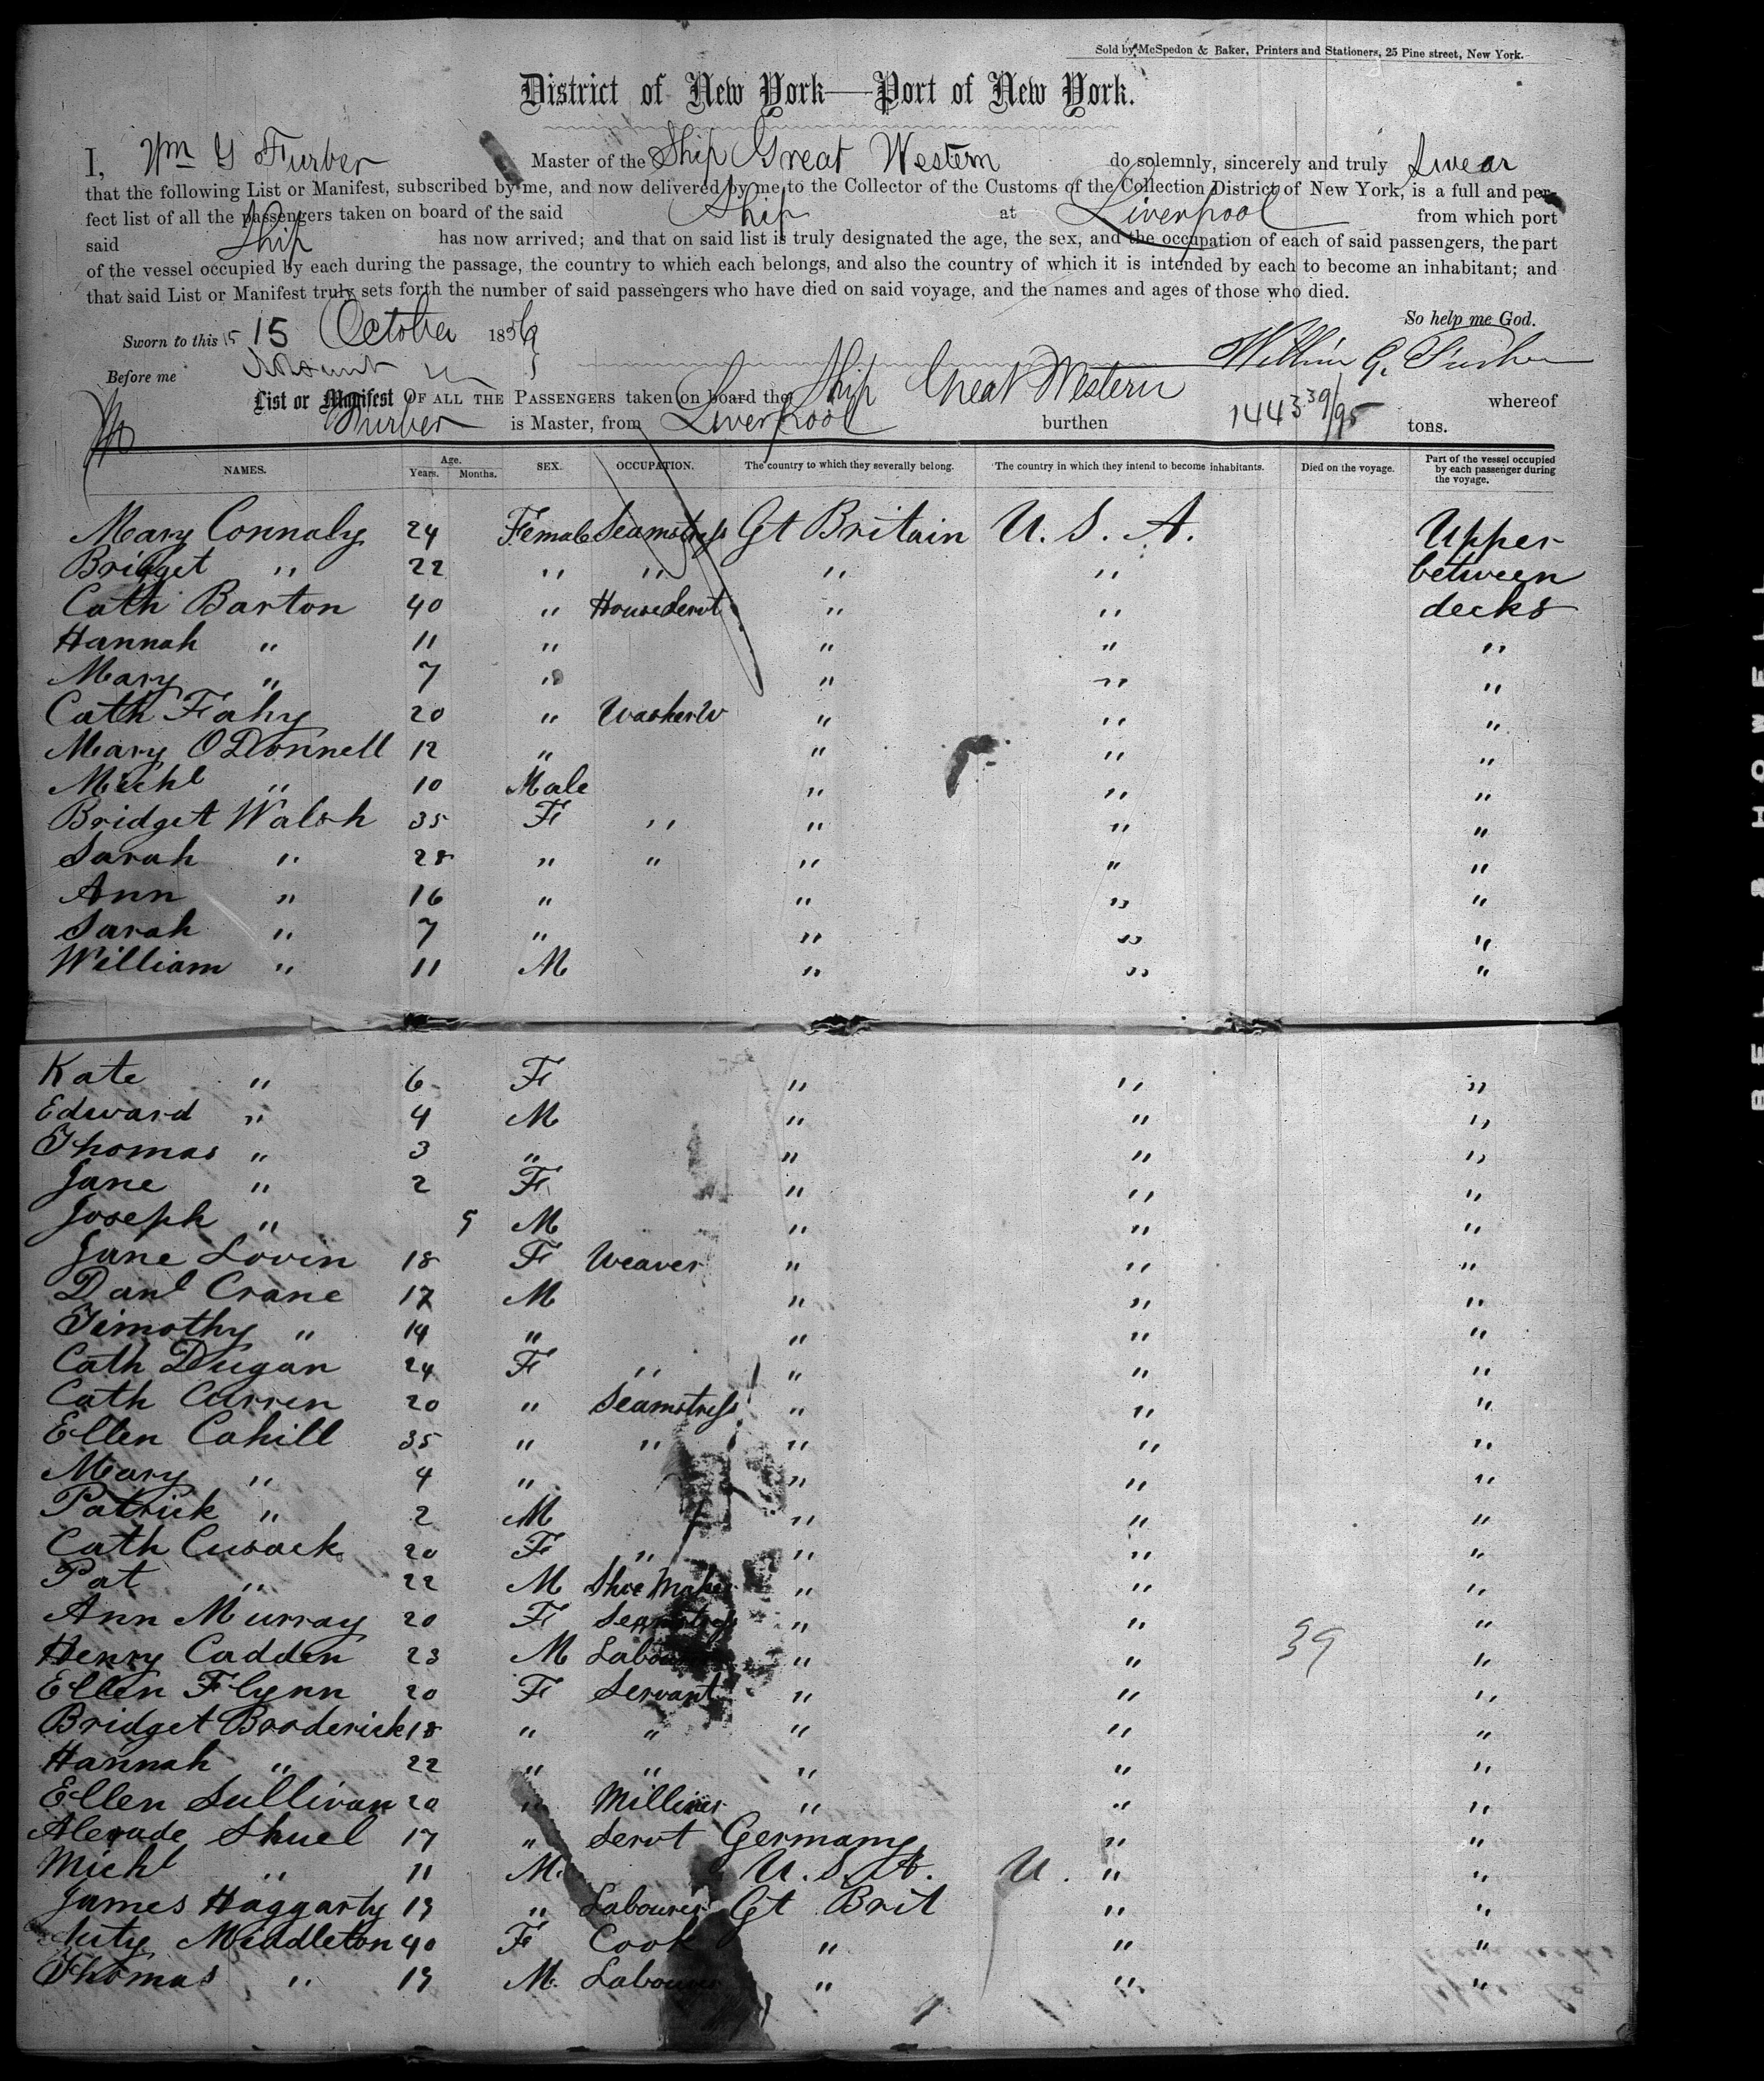 Sold by McSpedon & Baker, Printers and Stationers, 25 Pine street, New York.
District of New York—Port of New York.
I, Wm G Furber Master of the Ship Great Western do solemnly, sincerely and truly swear
that the following List or Manifest, subscribed by me, and now delivered by me to the Collector of the Customs of the Collection District of New York, is a full and per-
fect list of all the passengers taken on board of the said Ship at Liverpool from which port
said Ship has now arrived; and that on said list is truly designated the age, the sex, and the occupation of each of said passengers, the part
of the vessel occupied by each during the passage, the country to which each belongs, and also the country of which it is intended by each to become an inhabitant; and
that said List or Manifest truly sets forth the number of said passengers who have died on said voyage, and the names and ages of those who died.
So help me God.
Sworn to this 15 15 October 1856
William G. Furber
Before me
List or Manifest OF ALL THE PASSENGERS taken on board the Ship Great Western whereof
Furber is Master, from Liverpool burthen 1443 39/95 tons.
NAMES. Age. Years. Months. SEX. OCCUPATION. The country to which they severally belong. The country in which they intend to become inhabitants. Died on the voyage. Part of the vessel occupied by each passenger during the voyage.
Mary Connaly 24 Female Seamstress Gt Britain U. S. A. Upper
Bridget " 22 " " " " between
Cath Barton 40 " House Servt " " decks
Hannah " 11 " " " "
Mary " 7 " " " "
Cath Fahy 20 " Washer W " " "
Mary O Donnell 12 " " " "
Michl " 10 Male " " "
Bridget Walsh 35 F " " " "
Sarah " 28 " " " " "
Ann " 16 " " " "
Sarah " 7 " " " "
William " 11 M " " "
Kate " 6 F " " "
Edward " 4 M " " "
Thomas " 3 " " " "
Jane " 2 F " " "
Joseph " 9 M " " "
Jane Lovin 18 F Weaver " " "
Danl Crane 17 M " " "
Timothy " 14 " " " "
Cath Dugan 24 F " " " "
Cath Curren 20 " Seamstress " " "
Ellen Cahill 35 " " " " "
Mary " 4 " " " "
Patrick " 2 M " " "
Cath Cusack 20 F " " " "
Pat " 22 M Shoe Maker " " "
Ann Murray 20 F Seamstress " " "
Henry Cadden 23 M Labourer " " 39 "
Ellen Flynn 20 F Servant " " "
Bridget Broderick 18 " " " " "
Hannah " 22 " " " " "
Ellen Sullivan 20 " Milliner " " "
Shuel 17 " Servt Germany " "
Michl " 11 M. U. S. A. U. " "
James Haggarty 19 " Labourer Gt Brit " "
Middleton 40 F Cook " " "
Thomas " 19 M. Labourer " " "
BELL & HOWELL